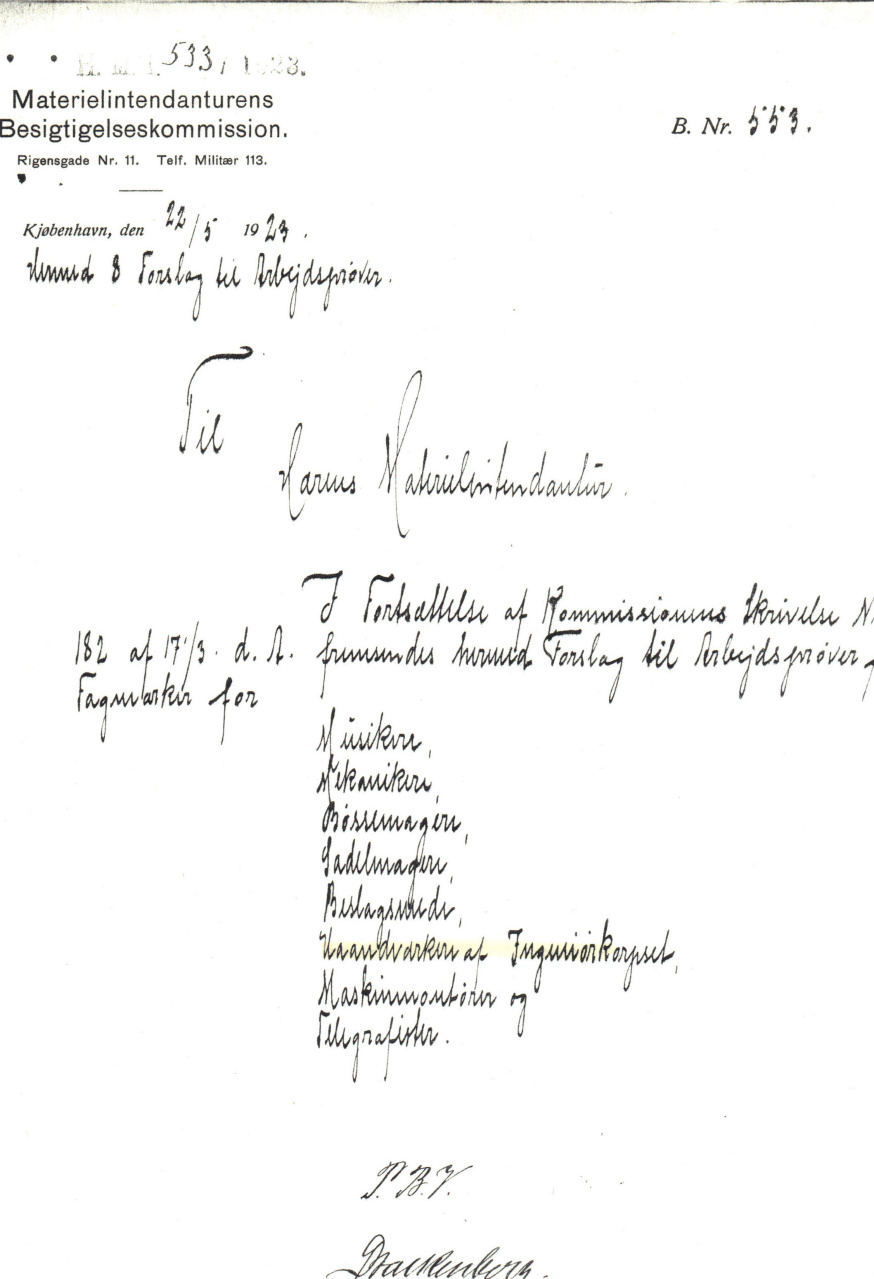 H. M. I. 533 / 1923.
Materielintendanturens
Besigtigelseskommission.
Rigensgade Nr. 11. Telf. Militær 113.
B. Nr. 553.
Kjøbenhavn, den 22/5 1923.
Hermed 8 Forslag til Arbejdsprøver.
Til
Hærens Materielintendantur.
I Fortsættelse af Kommissionens Skrivelse N
182 af 17/3. d. A. fremsendes hermed Forslag til Arbejdsprøver
Fagmærker for
Musikere,
Mekanikere,
Bøssemagere,
Sadelmagere,
Beslagsmede,
Haandværkere af Ingeniørkorpset,
Maskinmontører og
Telegrafister.
P.B.V.